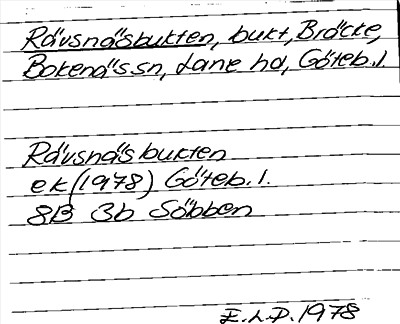 Rävsnäsbukten, bukt, Bräcke,
Bokenäs sn, Lane hd, Göteb. l.
Rävsnäsbukten
ek (1978) Göteb. l.
8B 3b Säbben
E.L.P. 1978